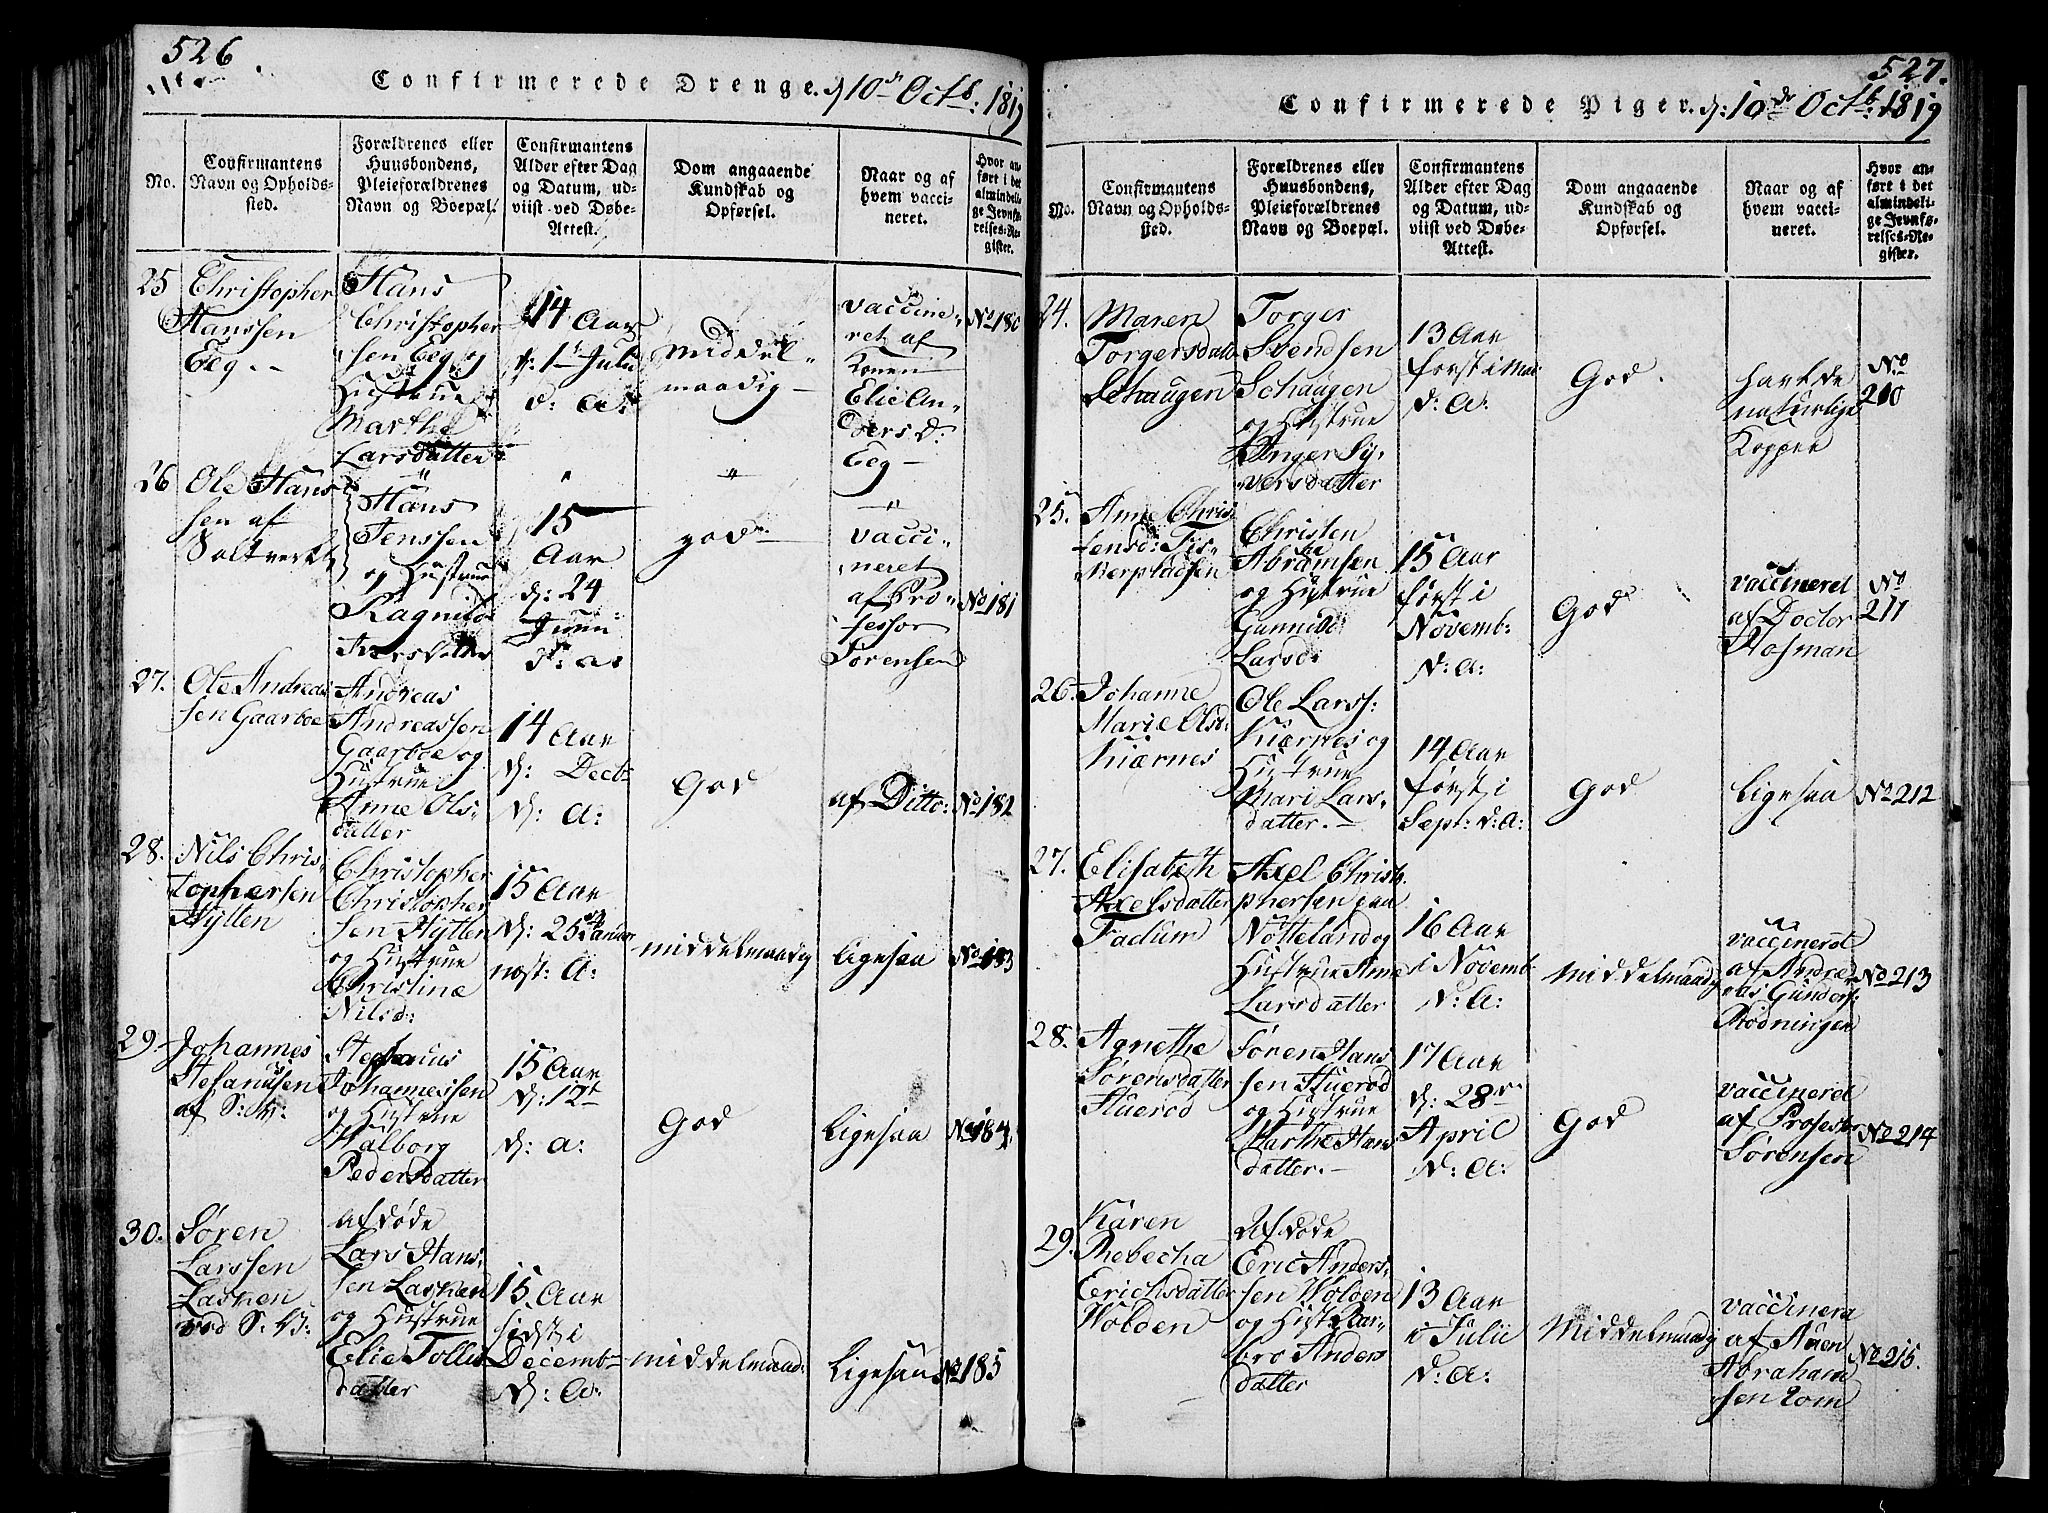 526
Confirmerede Drenge. d 10de Octb: 1819
No.
Confirmantens
Navn og Opholds-
sted.
Forældrenes eller
Huusbondens,
Pleieforældrenes
Navn og Boepæl.
Confirmantens
Alder efter Dag
og Datum, ud-
viist ved Døbe-
Attest.
Dom angaaende
Kundskab og
Opførsel.
Naar og af
hvem vacci-
neret.
Hvor an-
ført i det
almindeli-
ge Jevnfø-
relses-Re-
gister.
25
Christopher
Hanssen
Eeg --
Hans
Christopher
sen Eeg og
Hustrue
Marthe
Larsdatter
14 Aar
d: 1te Julii
d: a:
middel-
maadig
vaccine-
ret af
Konen
Elie An-
ders d:
Eeg
No 180
26
Ole Hans
sen af
Saltverk
Hans
Jenssen
og Hustrue
Ragnild
Iversdatter
15
Aar
d: 24
Juni
d: a:
god
vacci-
neret
af Pro-
fessor
Sørensen
No 181
27.
Ole Andreas
sen Gaarboe
Andreas
Andreassen
Gaarboe og
Hustrue
Anne Ols-
datter
14 Aar
d: Decb
d: A:
God
af Ditto:
No 182
28.
Nils Chris-
tophersen
Hytten
Christopher
Christopher
sen Hytten
og Hustrue
Christine
Nilsd:
15 Aar
d: 25de Januar
næst: A:
middelmaadig
ligesaa
No 183
29.
Johannes
Stefanussen
af S: V:
Stephanus
Johannessen
og Hustrue
Valborg
Pedersdatter
15 Aar
d: 12t
d: a:
God
ligesaa
No 184
30.
Søren
Larssen
Lasken
ved S: V:
Afdøde
Lars Hans-
sen Lasken
og Hustrue
Elie Tollis
datter
15 Aar
sidst i
Decemb
d: A:
middelmaad:
Ligesaa
No 185
527.
Confirmerede Piger. d: 10de Octb: 1819
No.
Confirmantens
Navn og Opholds-
sted.
Forældrenes eller
Huusbondens,
Pleieforældrenes
Navn og Boepæl.
Confirmantens
Alder efter Dag
og Datum, ud-
viist ved Døbe-
Attest.
Dom angaaende
Kundskab og
Opførsel.
Naar og af
hvem vacci-
neret.
Hvor an-
ført i det
almindeli-
ge Jevnfø-
relses-Re-
gister.
24.
Maren
Torgersdatt
Schaugen
Torger
Svendsen
Schaugen
og Hustrue
Inger Sy-
versdatter
13 Aar
først i Mai
d: A:
God.
havt de
naturlige
Kopper
No
210
25.
Anne Chris
tensd: Tis-
Christen
Abramsen
og Hustrue
Gunnild
Larsd:
15 Aar
først i
Novemb:
d: A:
God
vaccineret
af Doctor
Hofman
No
211
26.
Johanne
Marie Olsd:
Kiærnes
Ole Larss:
Kiærnes og
Hustrue
Mari Lars-
datter.
14 Aar
først i
Sept: d: A:
God
ligesaa
No 212
27.
Elisabeth
Axelsdatter
Fadum
Axel Christo
phersen paa
Nøtteland og
Hustrue Anne
Larsdatter
16 Aar
i Novemb
d: A:
middelmaadig
vaccineret
af Andre
as Gunders:
Rødningen
No 213
28.
Agnethe
Sørensdatter
Huerød
Søren Hans
sen Huerød
og Hustrue
Marthe Hans
datter.
17 Aar
d: 28de
April
d: A:
God
vaccineret
af Professor
Sørensen
No 214
29.
Karen
Rebecha
Erichsdatter
Wolden
Afdøde
Eric Anders-
sen Wolden
og Hust. Bar-
bro Anders
datter
13 Aar
i Julii
d: A:
Middelmaadig
vaccinera
af Auen
Abraham
sen Rom
No 215.